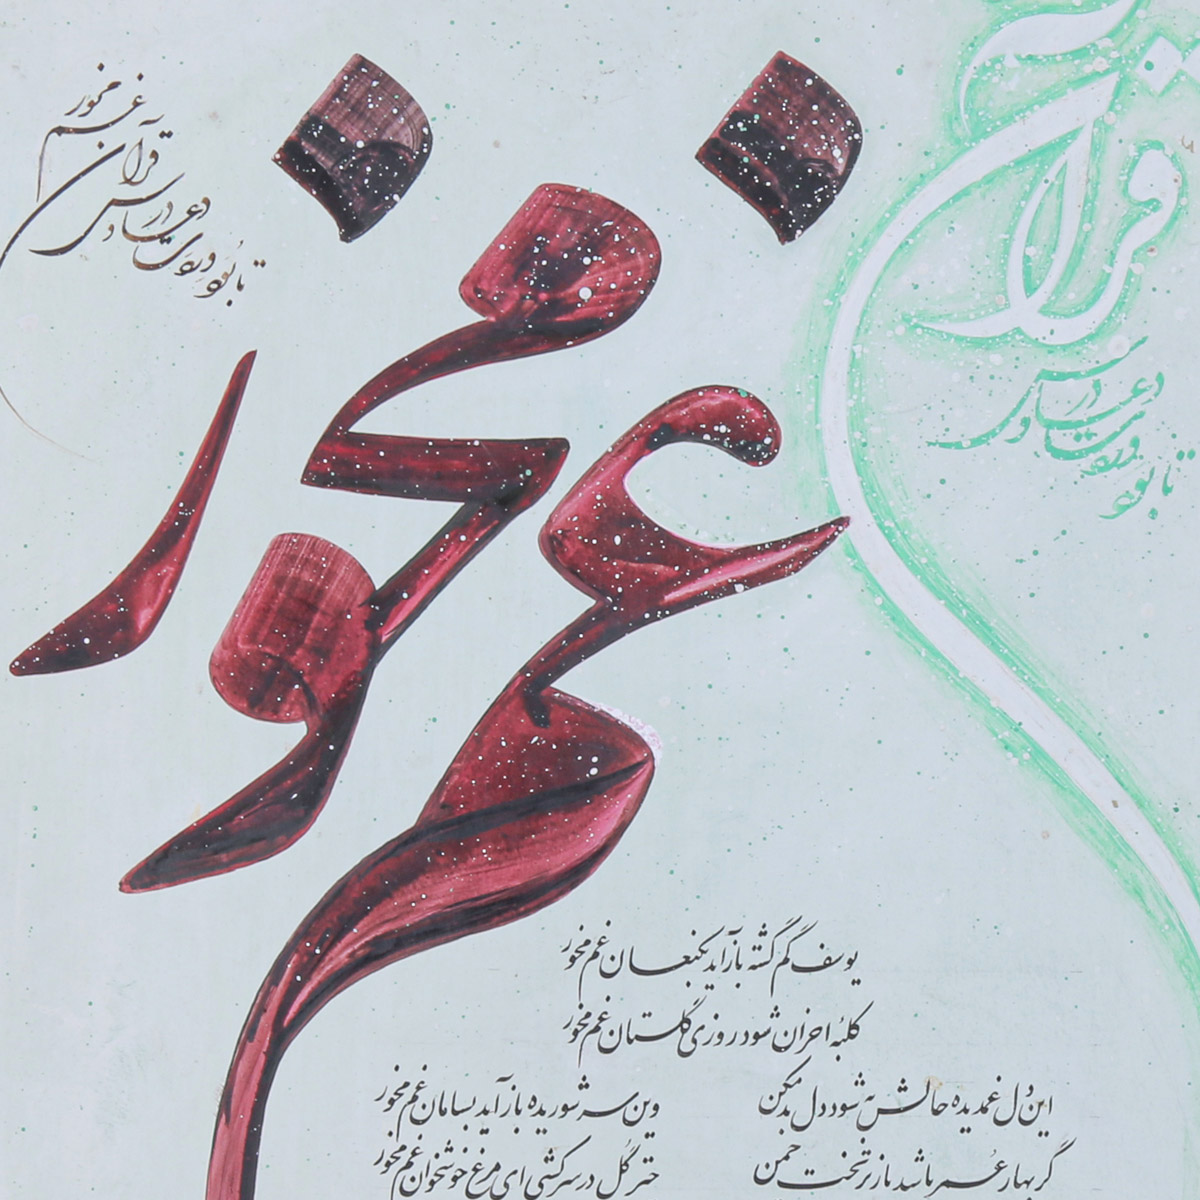 قرآن
تا بُوَد وردت دعا و درس
غم مخور
تا بُوَد وِردَت دعا و درس
قرآن
غم مخور
یوسف گم گشته باز آید بکنعان غم مخور
کلبهٔ احزان شود روزی گلستان غم مخور
این دل غمدیده حالش به شود دل بد مکن وین سر شوریده باز آید بسامان غم مخور
گر بهار عمر باشد باز بر تخت چمن چتر گل در سر کشی ای مرغ خوشخوان غم مخور